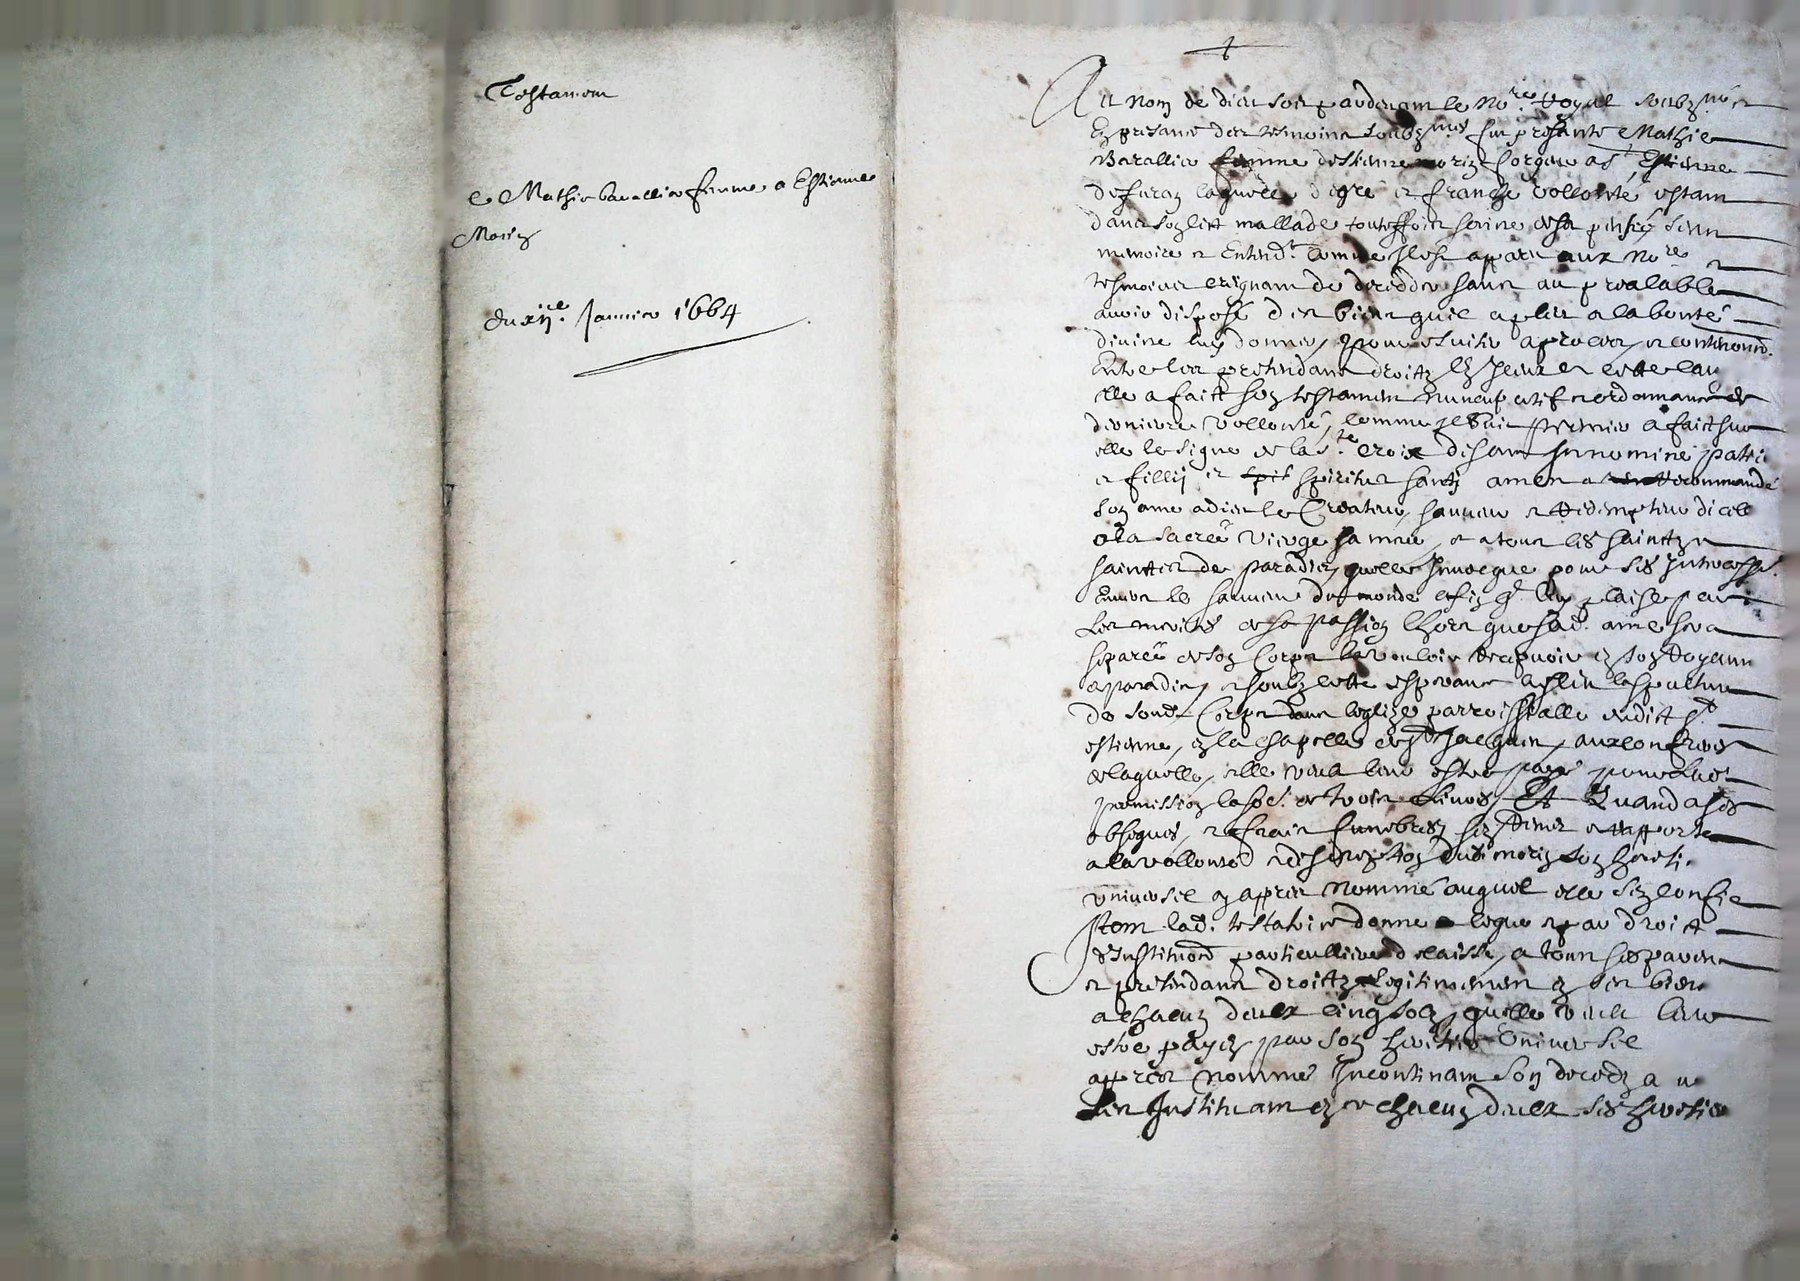 Testament
de Mathie barallier femme a Estienne
Morin
du xije. Janvier 1664
Au nom de dieu soit pardevant le Nore. Royal soubzné et
En presance des tesmoins soubznés fut presante Mathie
Barallier femme destienne morin forgeur a st Estienne
de furan laquelle de gré et franche vollonté estant
dans son lict mallade touteffois saine de sa pensée sens
memoire et Entendt. comme Il est aparu aux Nore. et
tesmoins creignant de decedder sans au prealable
avoir disposé des biens quil a pleu a la bonté
divine luy donner, pour esviter a proces, et contentiond.
Entre les pretendans droictz En Iceux a cette cau
elle a faict son testament nuncupatif et ordonnance de
derniere vollonté, comme sensuit premier a faict sur
elle le signe de la ste croix disant In nomine patri
et fillij et spiritus santi amen a recommandé
son ame a dieu le Createur, sauveur et Redempteur dicelle
a la sacrée vierge sa mere, et a tous les sainctz et
sainctes de paradis, quelle Invocque pour ses Intercesse.
Envers le sauveur du monde afin q. luy plaise par
Les merites de sa passion lhors que sad. ame sera
separée de son Corps la vouloir recepvoir en son Royaume
de paradis, et soubz cette esperance a esleu la sepulture
de sond. Corps dans leglize parroissialle dudict st
estienne, en la chapelle de st Jacques, aux confreres
de laquelle, elle veut leur estre payé pour lad.
permission la so. de trois Livres, Et Quand a ses
obseques, et frais funebres, sen Remet et rapporte
a la vollonté et discretion dud. morin son heriti.
universel cy appres nommé auquel elle sen confie
Item lad. testatrice donne legue et par droict
dInstitutiond particulliere delaisse, a tous ses parens
et pretendans droictz legitimement en ses biens
a chacun deulx cinq solz, quelle veut leur
estre payes par son heritier Universel
appres nommé Incontinant son decedz a u
Les Instituant en ce chacun deulx ses heritier